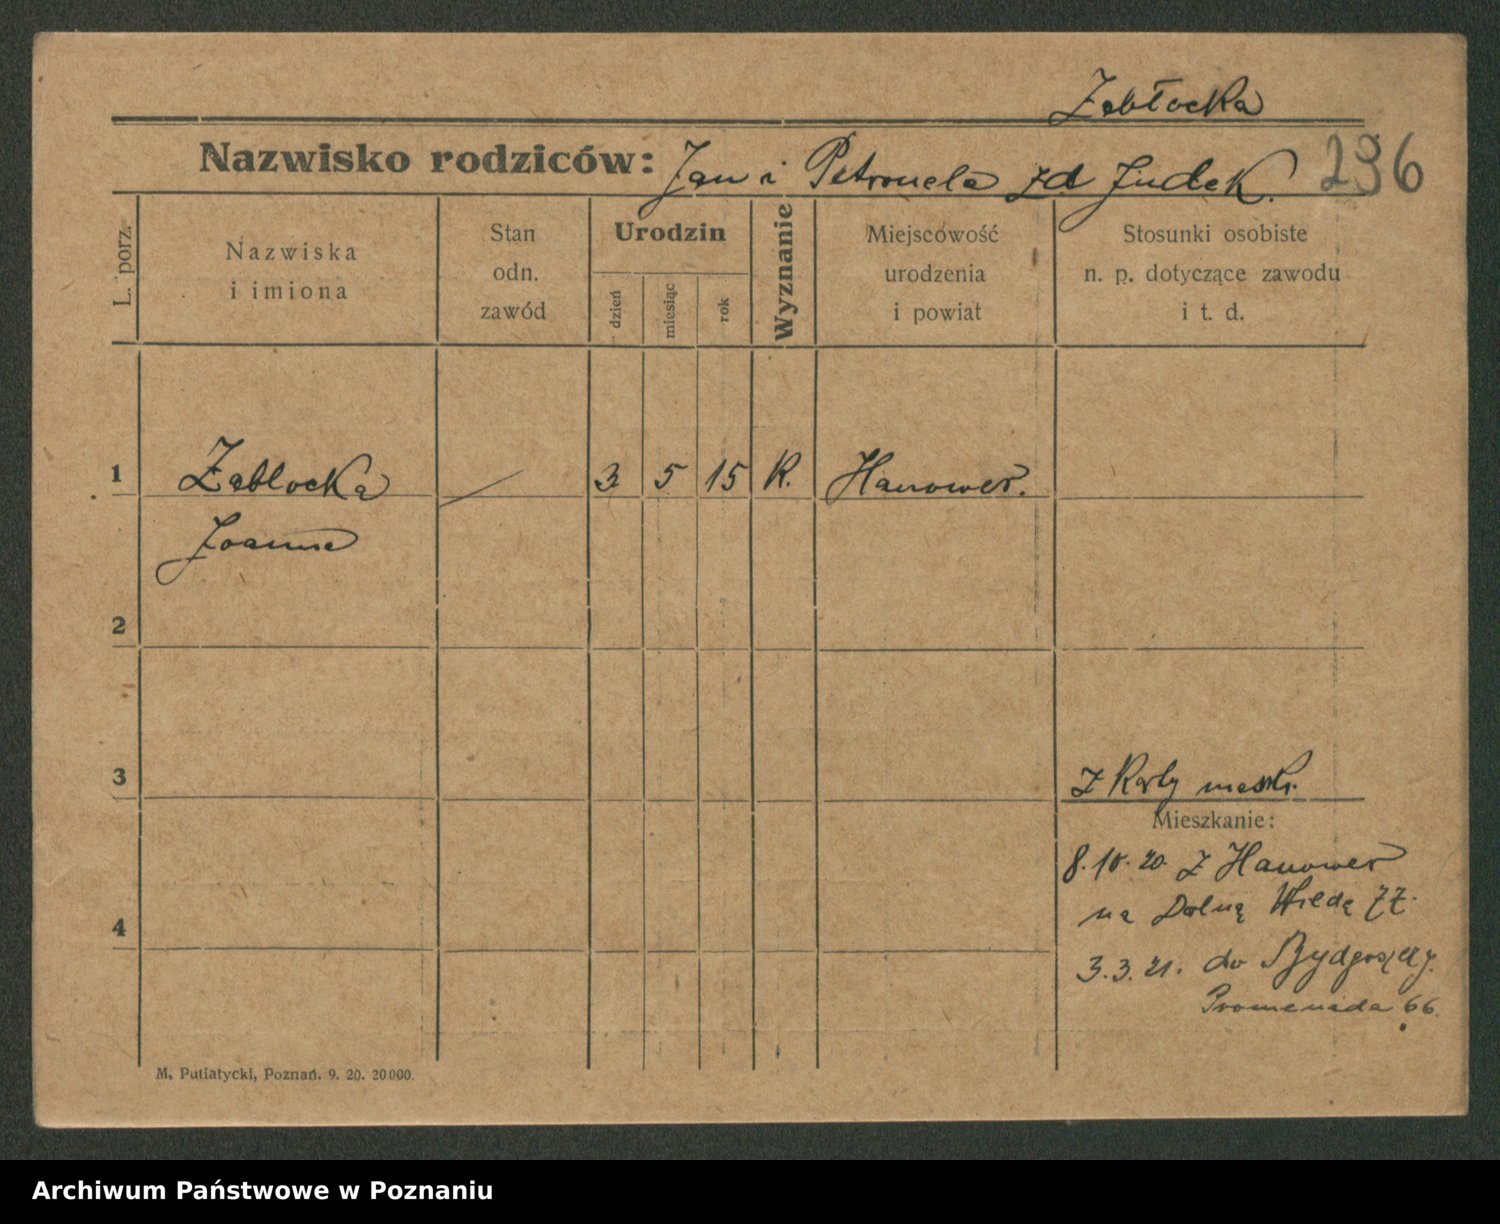 Zabłocka
Nazwisko rodziców: Jan i Petronela zd Judek. 296
L. porz.
Nazwiska
i imiona
Stan
odn.
zawód
Urodzin
dzień
miesiąc
rok
Wyznanie
Miejscowość
urodzenia
i powiat
Stosunki osobiste
n. p. dotyczące zawodu
i t. d.
1 Zablocka — 3 5 15 R. Hanower.
Joanna
2
3
z Karty
Mieszkanie:
8.10.20. z Hanower
na Dolną Wildę 77.
4
3.3.21. do Bydgoszczy.
Promenada 66.
M. Putiatycki, Poznań. 9. 20. 20000.
Archiwum Państwowe w Poznaniu